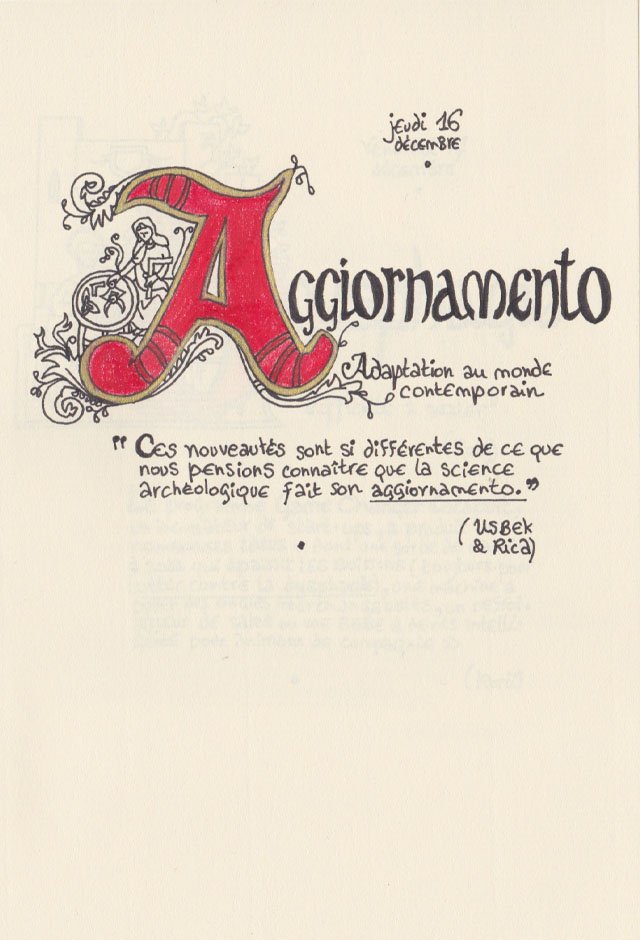 jeudi 16
décembre
Aggiornamento
Adaptation au monde
contemporain
" Ces nouveautés sont si différentes de ce que
nous pensions connaître que la science
archéologique fait son aggiornamento. "
(Usbek
& Rica)